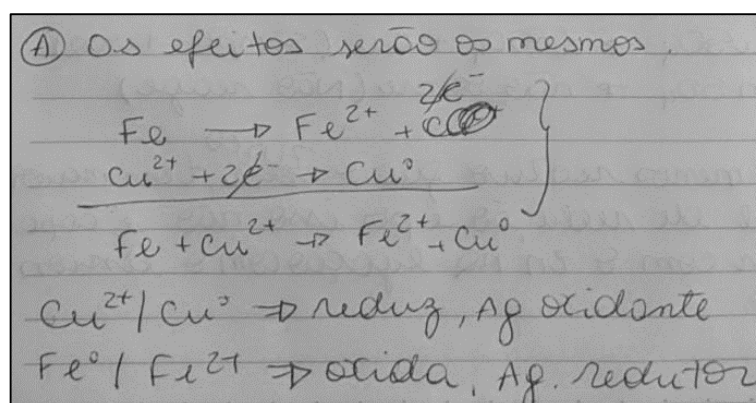 Ⓐ Os efeitos serão os mesmos.
Fe → Fe²⁺ + 2e⁻
Cu²⁺ + 2e⁻ → Cu⁰
Fe + Cu²⁺ → Fe²⁺ + Cu⁰
Cu²⁺/Cu⁰ ⇒ reduz, Ag oxidante
Fe⁰/Fe²⁺ ⇒ oxida, Ag. redutor